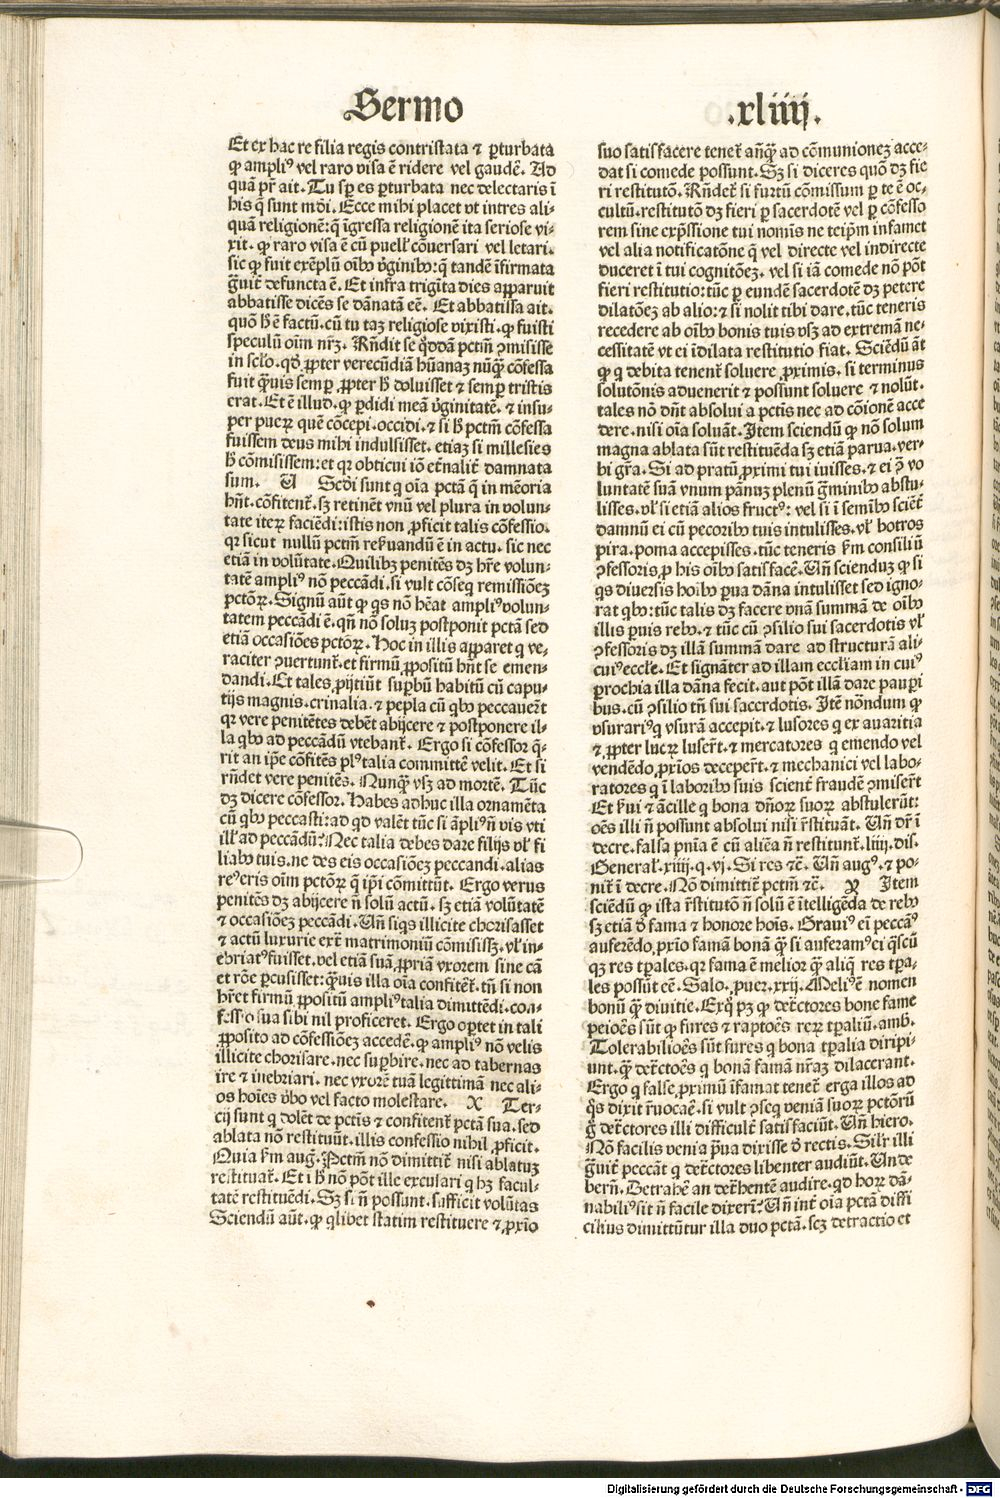 Sermo
.xliiij.
Et ex hac re filia regis contristata ⁊ ꝑturbata
ꝙ ampliꝰ vel raro visa ē ridere vel gaudē. Ad
quā pr̄ ait. Tu sꝑ es ꝑturbata nec delectaris ī
his q̄ sunt mōi. Ecce mihi placet vt intres ali-
quā religionē: q̄ īgressa religionē ita seriose vi-
xit. ꝙ raro visa ē cū puell' cōuersari vel letari.
sic ꝙ fuit exēplū oībꝰ v̓ginibꝰ: q̄ tandē īfirmata
g̃uit̓ defuncta ē. Et infra trigīta dies apparuit
abbatisse dicēs se dānatā eē. Et abbatissa ait.
quō h̓ ē factū. cū tu taꝫ religiose vixisti. ꝙ fuisti
speculū oīm nr̄ꝫ. Rn̄dit se q̇ddā pctm̄ ꝯmisisse
in sclo. qd̓ ꝓpter verecūdiā hūanaꝫ nūꝙ̄ cōfessa
fuit ꝙ̄uis semꝑ ꝓpter h̓ doluisset ⁊ semꝑ tristis
erat. Et ē illud. ꝙ ꝑdidi meā v̓ginitatē. ⁊ insu-
per pueꝝ quē cōcepi. occidi. ⁊ si h̓ pctm̄ cōfessa
fuissem deus mihi indulsisset. etiaꝫ si millesies
h̓ cōmisissem: et qꝛ obticui iō et̓nalit̓ damnata
sum. V Scdi sunt q oīa pctā q̄ in mēoria
hn̄t. cōfitent̓. sꝫ retinēt vnū vel plura in volun-
tate iteꝝ faciēdi: istis non ꝓficit talis cōfessio.
qꝛ sicut nullū pctm̄ rẽuandū ē in actu. sic nec
etiā in volūtate. Quilibꝫ penitēs dꝫ hr̄e volun-
tatē ampliꝰ nō peccādi. si vult cōseq remissiōeꝫ
pctōꝝ. Signū aūt ꝙ qs nō hēat ampliꝰ volun-
tatem peccādi ē. qn̄ nō soluꝫ postponit pctā sed
etiā occasiōes pctōꝝ. Hoc in illis apparet q ve-
raciter ꝯuertunt̓. et firmū ꝓpositū hn̄t se emen-
dandi. Et tales ꝓijtiūt suꝑbū habitū cū capu-
tijs magnis. crinalia. ⁊ pepla cū qbꝰ peccauerūt
qꝛ vere penitētes debēt abijcere ⁊ postponere il-
la qbꝰ ad peccādū vtebanꝛ̓. Ergo si cōfessor q̄-
rit an ip̄e cōfitēs plꝰ talia committē velit. Et si
rn̄det vere penitēs. Nunꝙ̄ vsꝫ ad mortē. Tūc
dꝫ dicere cōfessor. Habes adhuc illa ornamēta
cū qbꝰ peccasti: ad qd valēt tūc si āpliꝰ n̄ vis vti
ill' ad peccādū? Nec talia debes dare filijs vl' fi
liabꝰ tuis. ne des eis occasiōeꝫ peccandi. alias
reꝰ eris oīm pctōꝝ q̄ ip̄i cōmittūt. Ergo verus
penitēs dꝫ abijcere n̄ solū actū. sꝫ etiā volūtatē
⁊ occasiōeꝫ peccādi. Vn̄ siqs illicite chorisasset
⁊ actū luxurie ext̓ matrimoniū cōmisissꝫ. vl' in-
ebriatꝰ fuisset. vel etiā suā ꝓpriā vxorem sine cā
et rōe ꝑcusisset: ꝙ̄uis illa oīa confitēt̓. tn̄ si non
hr̄et firmū ꝓpositū ampliꝰ talia dimittēdi. con-
fessio sua sibi nil proficeret. Ergo oꝑtet in tali
ꝓposito ad cōfessiōeꝫ accedē. ꝙ ampliꝰ nō velis
illicite chorisare. nec suꝑbire. nec ad tabernas
ire ⁊ inebriari. nec vxorē tuā legittimā nec ali-
os hoīes v̓bo vel facto molestare. X Ter-
cij sunt q dolēt de pctis ⁊ confitent̓ pctā sua. sed
ablata nō restituūt. illis confessio nihil ꝓficit.
Quia ẽm aug̓. Pctm̄ nō dimittit̓ nisi ablatuꝫ
restituat̓. Et ī h̓ nō pōt ille excusari q hꝫ facul-
tatē restituēdi. Sꝫ si n̄ possunt. sufficit volūtas
Sciendū aūt. ꝙ qlibet statim restituere ⁊ ꝓxīo
suo satisfacere tenet̓ anꝙ̄ ad cōmunioneꝫ acce-
dat si comede possunt. Sꝫ si diceres quō dꝫ fie
ri restitutō. Rn̄det̓ si furtū cōmissum ꝑ te ē oc-
cultū. restitutō dꝫ fieri ꝑ sacerdotē vel ꝑ cōfesso
rem sine exp̄ssione tui nomīs ne teip̄m infamet
vel alia notificatōne q̄ vel directe vel indirecte
duceret ī tui cognitōeꝫ. vel si iā comede nō pōt
fieri restitutio: tūc ꝑ eundē sacerdotē dꝫ petere
dilatōeꝫ ab alio: ⁊ si nolit tibi dare. tūc teneris
recedere ab oībꝰ bonis tuis vsꝫ ad extremā ne-
cessitatē vt ei īdilata restitutio fiat. Sciēdū āt
ꝙ q debita tenent̓ soluere ꝓximis. si terminus
solutōnis aduenerit ⁊ possunt soluere ⁊ nolūt.
tales nō dn̄t absolui a pctis nec ad cōionē acce
dere. nisi oīa soluāt. Item sciendū ꝙ nō solum
magna ablata sūt restituēda sꝫ etiā parua. ver-
bi gr̄a. Si ad pratū ꝓximi tui iuisses. ⁊ ei p̄ vo
luntatē suā vnum pānuꝫ plenū g̃minibꝰ abstu-
lisses. vl' si etiā alios fructꝰ: vel si ī semībꝰ sciēt̓
damnū ei cū pecoribꝰ tuis intulisses. vl' botros
pira. poma accepisses. tūc teneris ẽm consiliū
ꝯfessoris ꝓ his oībꝰ satisfacē. Vn̄ scienduꝫ ꝙ si
qs diuersis hoībꝰ ꝑua dāna intulisset sed igno-
rat qbꝰ: tūc talis dꝫ facere vnā summā de oībꝰ
illis ꝑuis rebꝰ. ⁊ tūc cū ꝯsilio sui sacerdotis vl'
ꝯfessoris dꝫ illā summā dare ad structurā ali-
cuiꝰ eccle. Et signāter ad illam eccl̓iam in cuiꝰ
ꝑrochia illa dāna fecit. aut pōt illā dare pauꝑi
bus. cū ꝯsilio tn̄ sui sacerdotis. Itē nōndum ꝙ
vsurariꝰ q vsurā accepit. ⁊ lusores q ex auaritia
⁊ ꝓpter lucꝝ luser̄t. ⁊ mercatores q emendo vel
vendēdo ꝓxīos deceper̄t. ⁊ mechanici vel labo-
ratores q ī laboribꝰ suis scient̓ fraudē ꝯmiser̄t
Et ẽui ⁊ ācille q bona dn̄oꝝ suoꝝ abstulerūt:
oēs illi n̄ possunt absolui nisi r̄stituāt. Vn̄ dr̄ ī
decre. falsa pn̄ia ē cū aliēa n̄ restitunt̓. liiij. dis.
General'. xiiij. q. vj. Si res ⁊c̄. Vn̄ augꝰ. ⁊ po-
nit̓ ī decre. Nō dimittit̓ pctm̄ ⁊c̄. Y Item
sciēdū ꝙ ista r̄stitutō n̄ solū ē ītelligēda de rebꝰ
sꝫ etiā d̓ fama ⁊ honore hoīs. Grauiꝰ ei peccāꝰ
auferēdo ꝓxīo famā bonā ꝙ̄ si auferamꝰ ei q̄scū
qꝫ res tꝑales. qꝛ fama ē melior ꝙ̄ aliq̄ res tꝑa-
les possūt eē. Salo. ꝓuer. xxij. Meliꝰ ē nomen
bonū ꝙ̄ diuitie. Exq̇ pꝫ ꝙ det̓ctores bone fame
peioēs sūt ꝙ fures ⁊ raptoēs reꝝ tꝑaliū. amb.
Tolerabilioēs sūt fures q bona tꝑalia diripi-
unt. ꝙ̄ det̓ctoēs q bonā famā nr̄aꝫ dilacerant.
Ergo q false ꝓximū īfamat tenet̓ erga illos ad
q̄s dixit r̄uocaē. si vult ꝯseq veniā suoꝝ pctōrū
g̊ det̓ctores illi difficult̓ satisfaciūt. Vn̄ hiero.
Nō facilis venia p̄ua dixisse d̓ rectis. Silr̓ illi
g̃uit̓ peccāt q det̓ctores libenter audiūt. Vnde
bern̄. Detrahē an det̓hentē audire. qd hoꝝ dā-
nabiliꝰ sit n̄ facile dixerī? Vn̄ int̓ oīa pctā diffi
cilius dimittūtur illa duo pctā. scꝫ detractio et
Digitalisierung gefördert durch die Deutsche Forschungsgemeinschaft - DFG